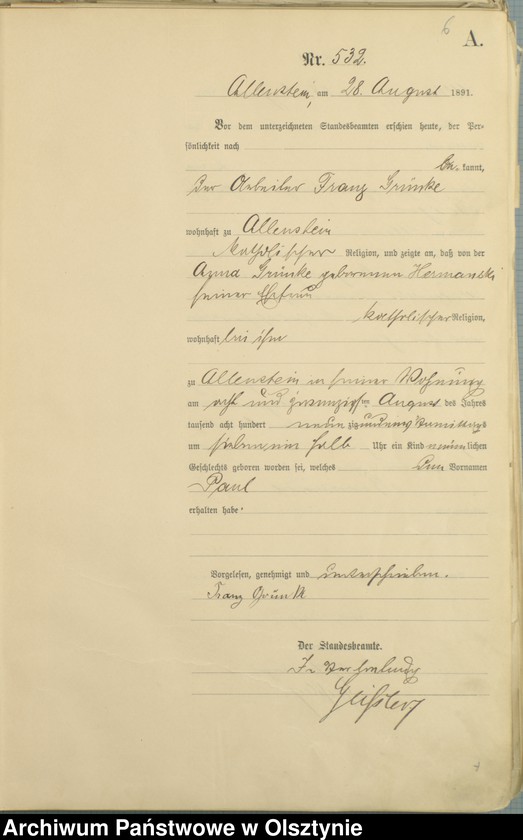 6
A.
Nr. 532.
Allenstein, am 28. August 1891.
Vor dem unterzeichneten Standesbeamten erschien heute, der Per-
sönlichkeit nach
be- kannt,
der Arbeiter Franz Grünke
wohnhaft zu Allenstein
katholischer Religion, und zeigte an, daß von der
Anna Grünke geborenen Hermanski
seiner Ehefrau
katholischer Religion,
wohnhaft bei ihm
zu Allenstein in seiner Wohnung
am acht und zwanzigsten August des Jahres
tausend acht hundert neunzig und eins Vormittags
um sieben ein halb Uhr ein Kind männlichen
Geschlechts geboren worden sei, welches den Vornamen
Paul
erhalten habe.
Vorgelesen, genehmigt und unterschrieben.
Franz Grünk
Der Standesbeamte.
In Vertretung
Archiwum Państwowe w Olsztynie